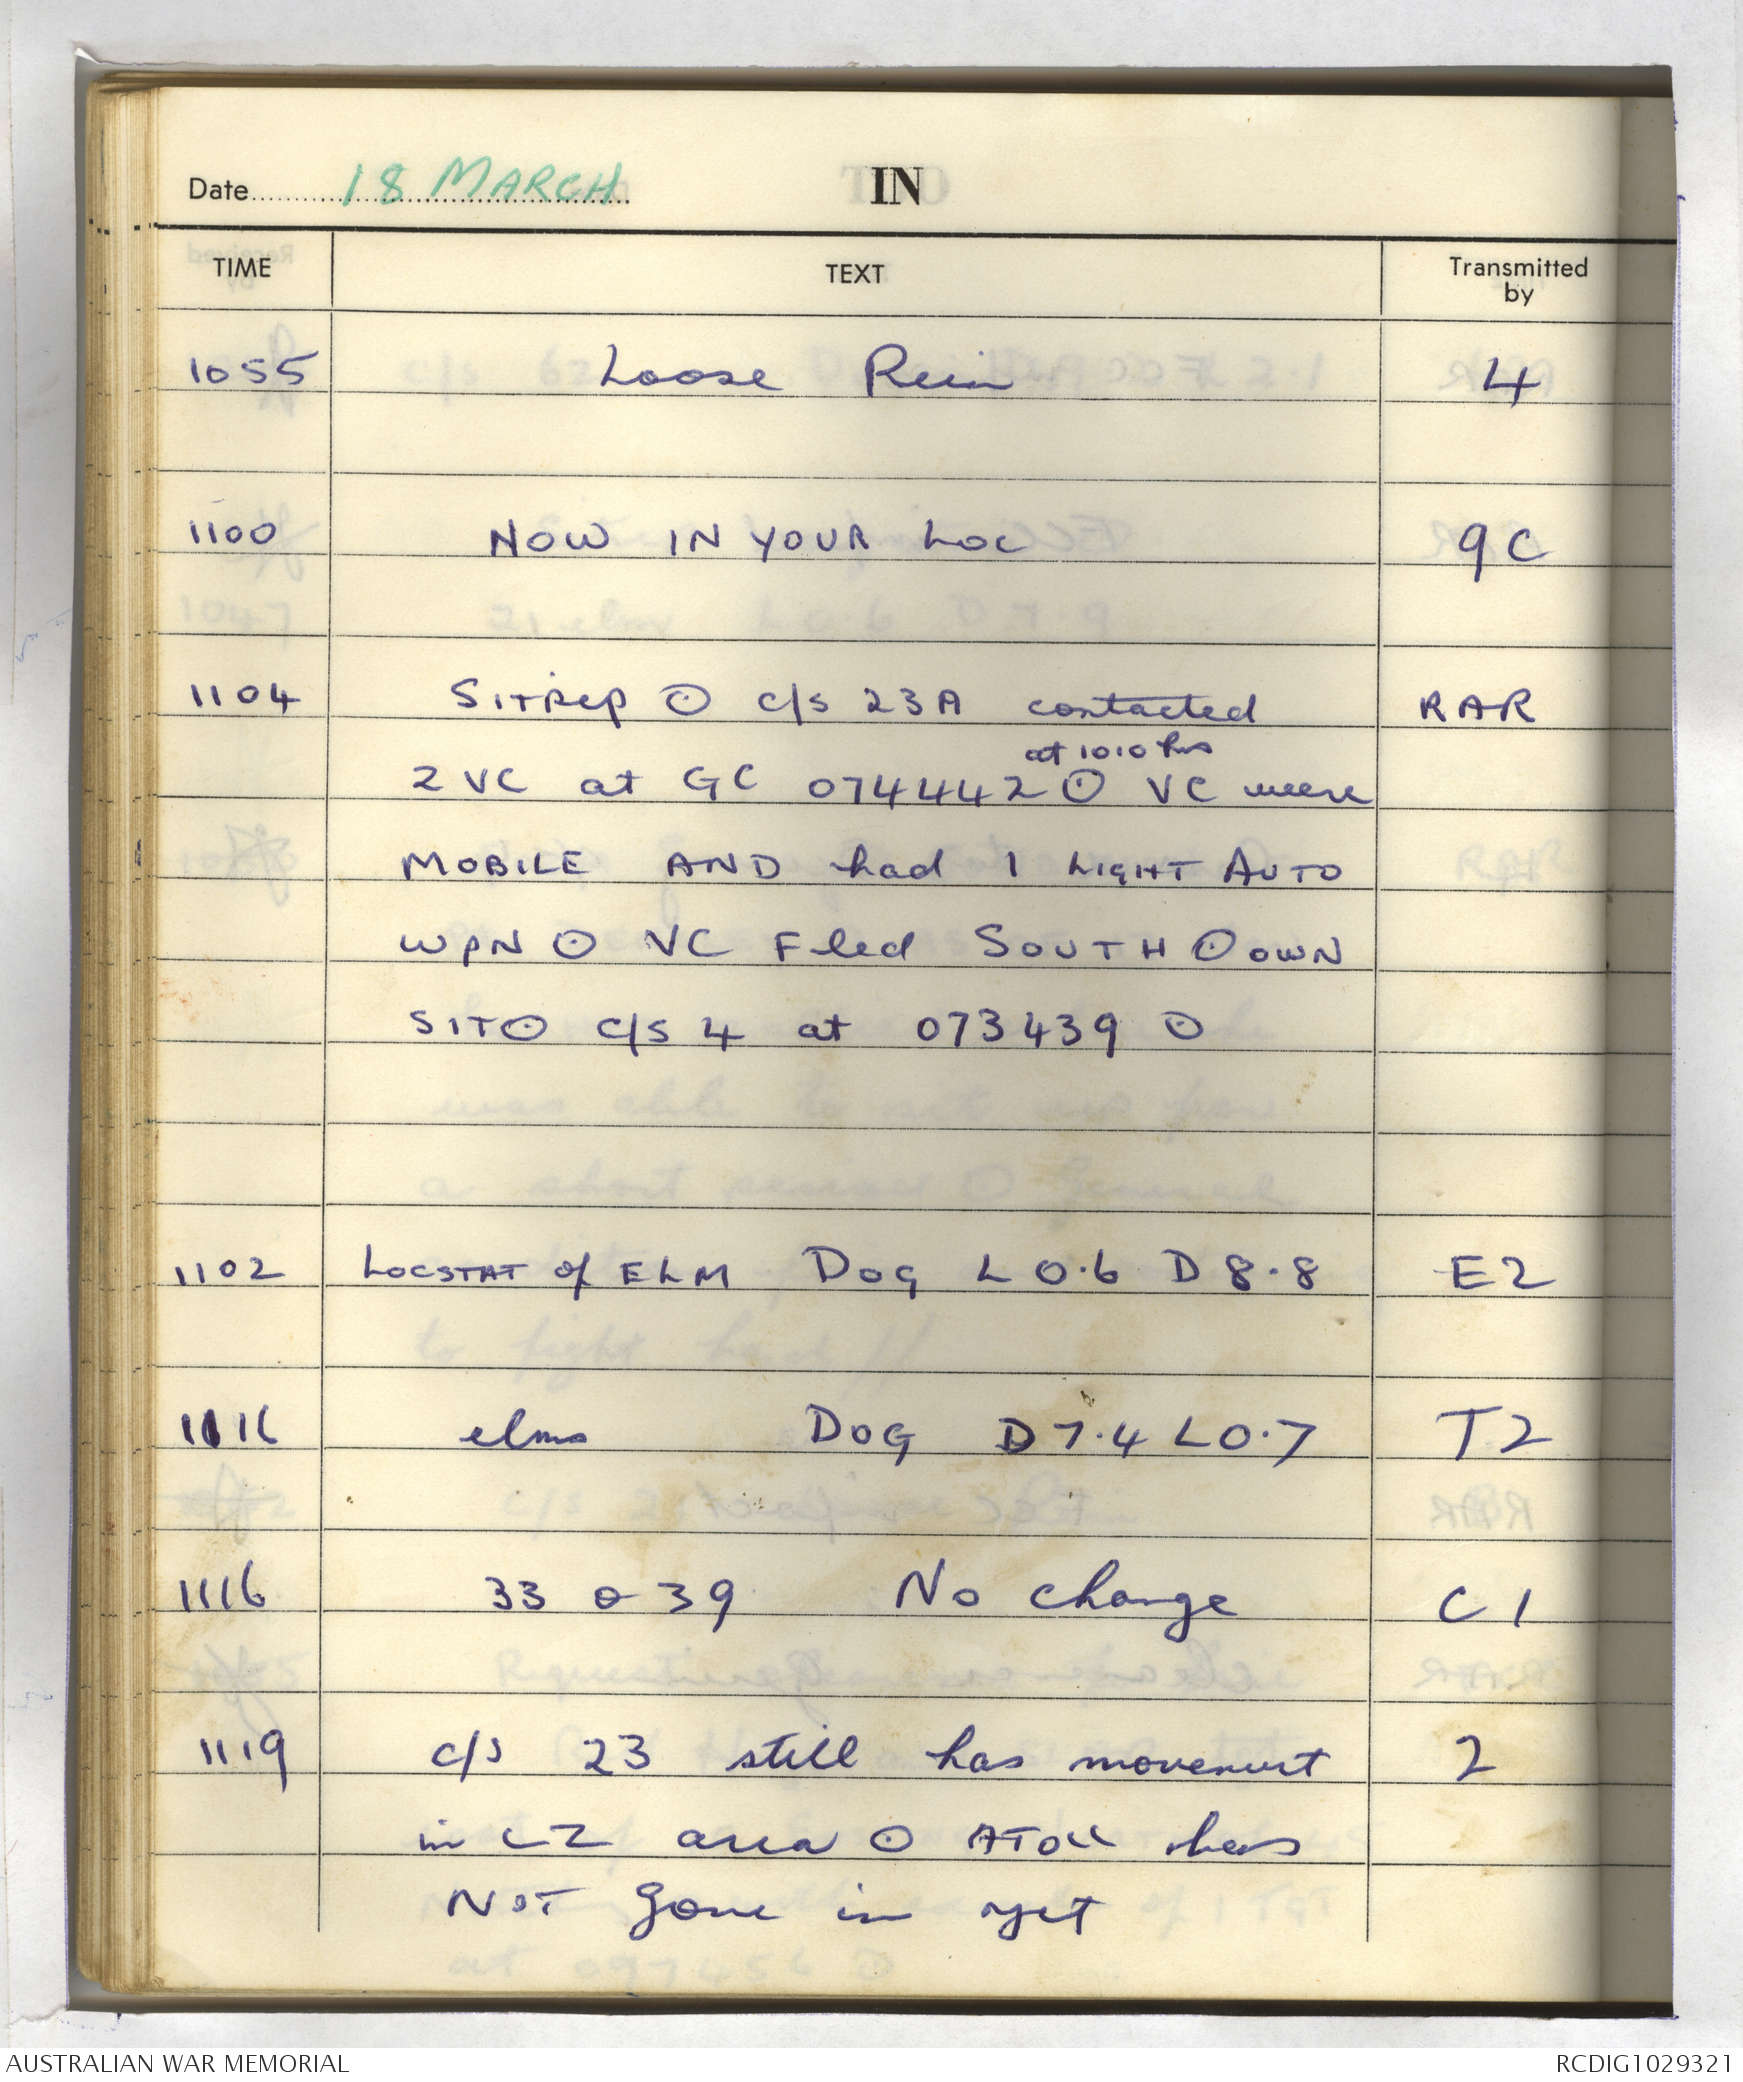 Date 18 MARCH IN
TIME TEXT Transmitted by
1055 Loose Rein 4
1100 NOW IN YOUR LOC 9C
1104 SITREP ⊙ c/s 23A contacted RAR
at 1010 hrs
2 VC at GC 074442 ⊙ VC were
MOBILE AND had 1 LIGHT AUTO
WPN ⊙ VC Fled SOUTH ⊙ OWN
SIT ⊙ c/s 4 at 073439 ⊙
1102 LOCSTAT of ELM DOG L 0.6 D 8.8 E2
1116 elms DOG D 7.4 L 0.7 T2
1116 33 39 No change C1
1119 c/s 23 still has movement 2
in LZ area ⊙ has
NOT gone in yet
AUSTRALIAN WAR MEMORIAL RCDIG1029321